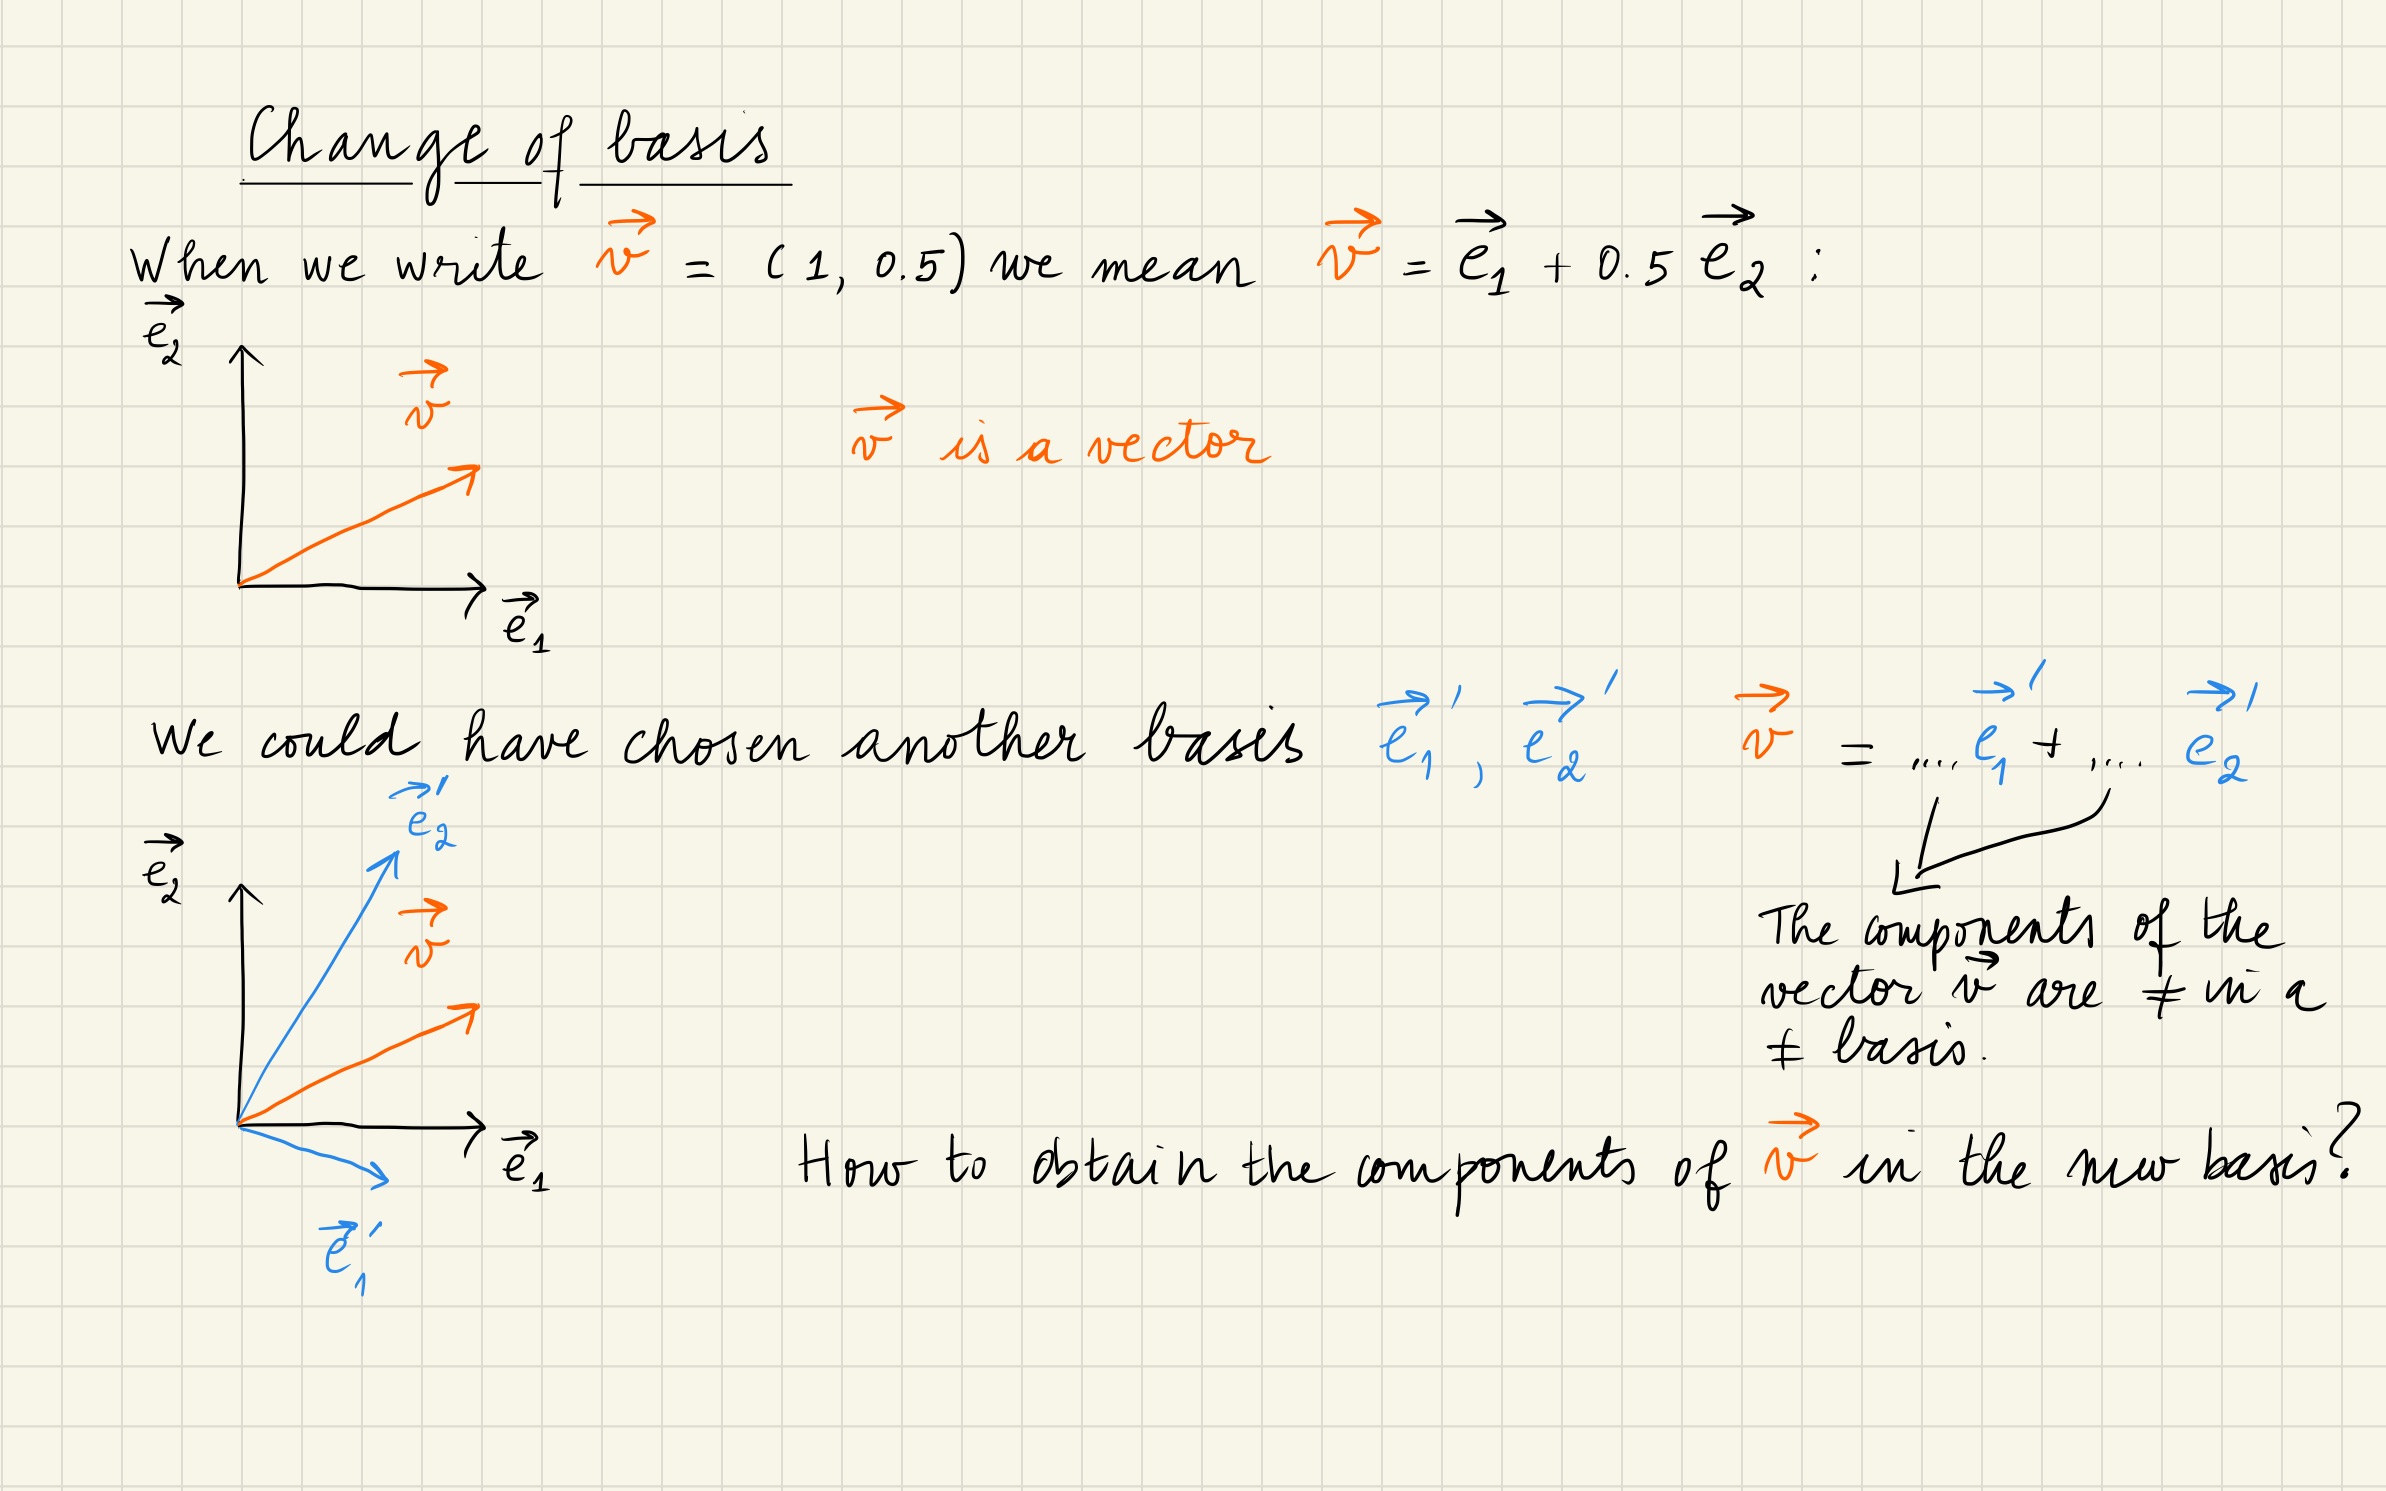 Change of basis
When we write v⃗ = (1, 0.5) we mean v⃗ = e⃗₁ + 0.5 e⃗₂ :
e⃗₂
v⃗
v⃗ is a vector
e⃗₁
We could have chosen another basis e⃗₁', e⃗₂' v⃗ = .... e⃗₁' + .... e⃗₂'
e⃗₂'
e⃗₂
v⃗
The components of the
vector v⃗ are ≠ in a
≠ basis.
e⃗₁
How to obtain the components of v⃗ in the new basis?
e⃗₁'